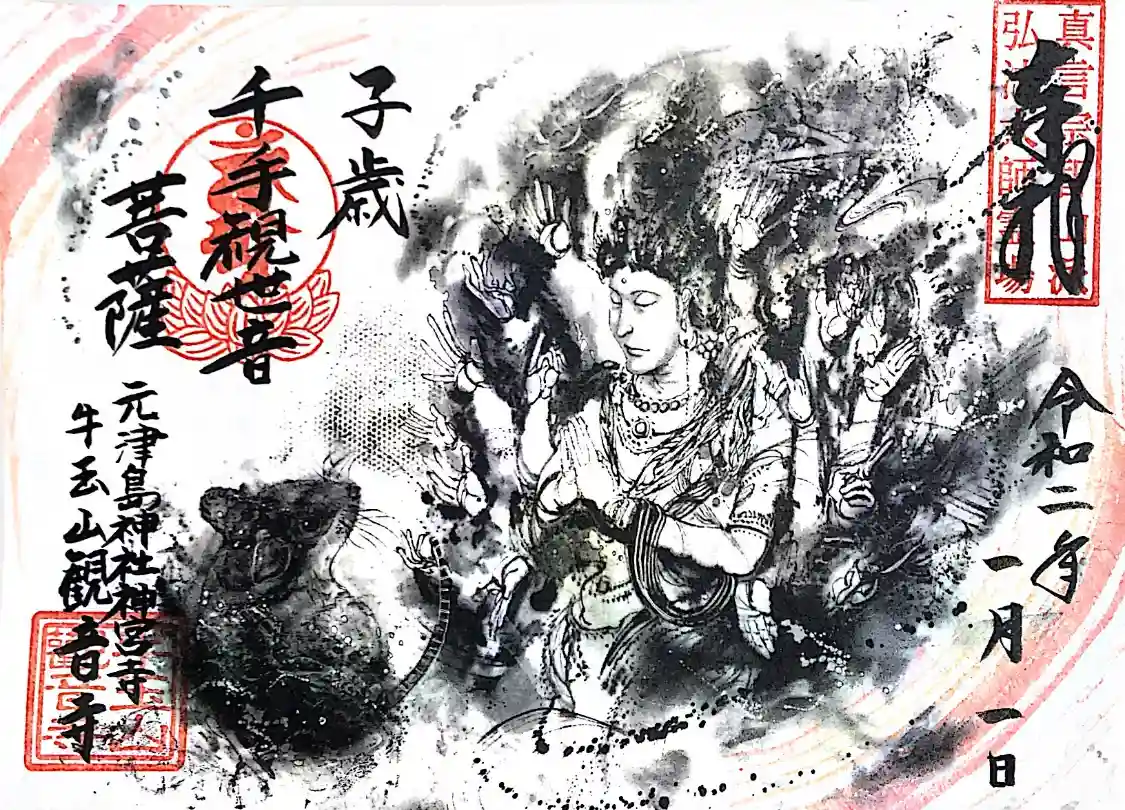 奉拝
真言宗智山派
弘法大師霊場
令和二年
一月一日
子歳
千手観世音
菩薩
元津島神社神宮寺
牛玉山観音寺